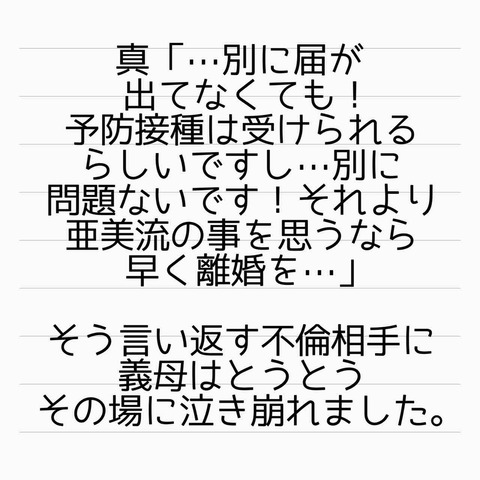 真「…別に届が
出てなくても！
予防接種は受けられる
らしいですし…別に
問題ないです！それより
亜美流の事を思うなら
早く離婚を…」
そう言い返す不倫相手に
義母はとうとう
その場に泣き崩れました。